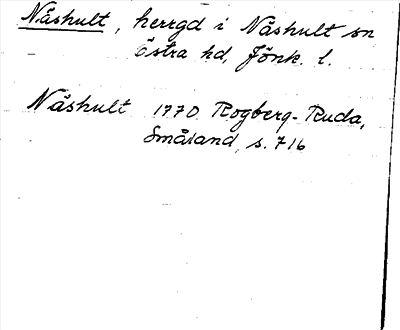 Nåshult, herrgd i Nåshult sn
Östra hd, Jönk. l.
Nåshult 1770 Rogberg-Ruda,
Småland, s. 716